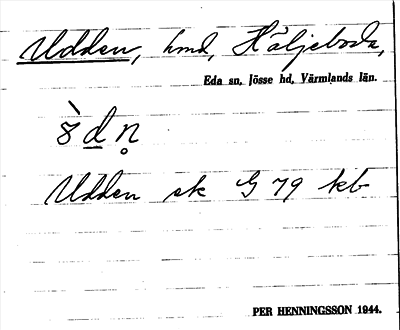 Udden, hmd, Häljeboda,
Eda sn, Jösse hd, Värmlands län.
Udden ek G 79 kb
PER HENNINGSSON 1944.